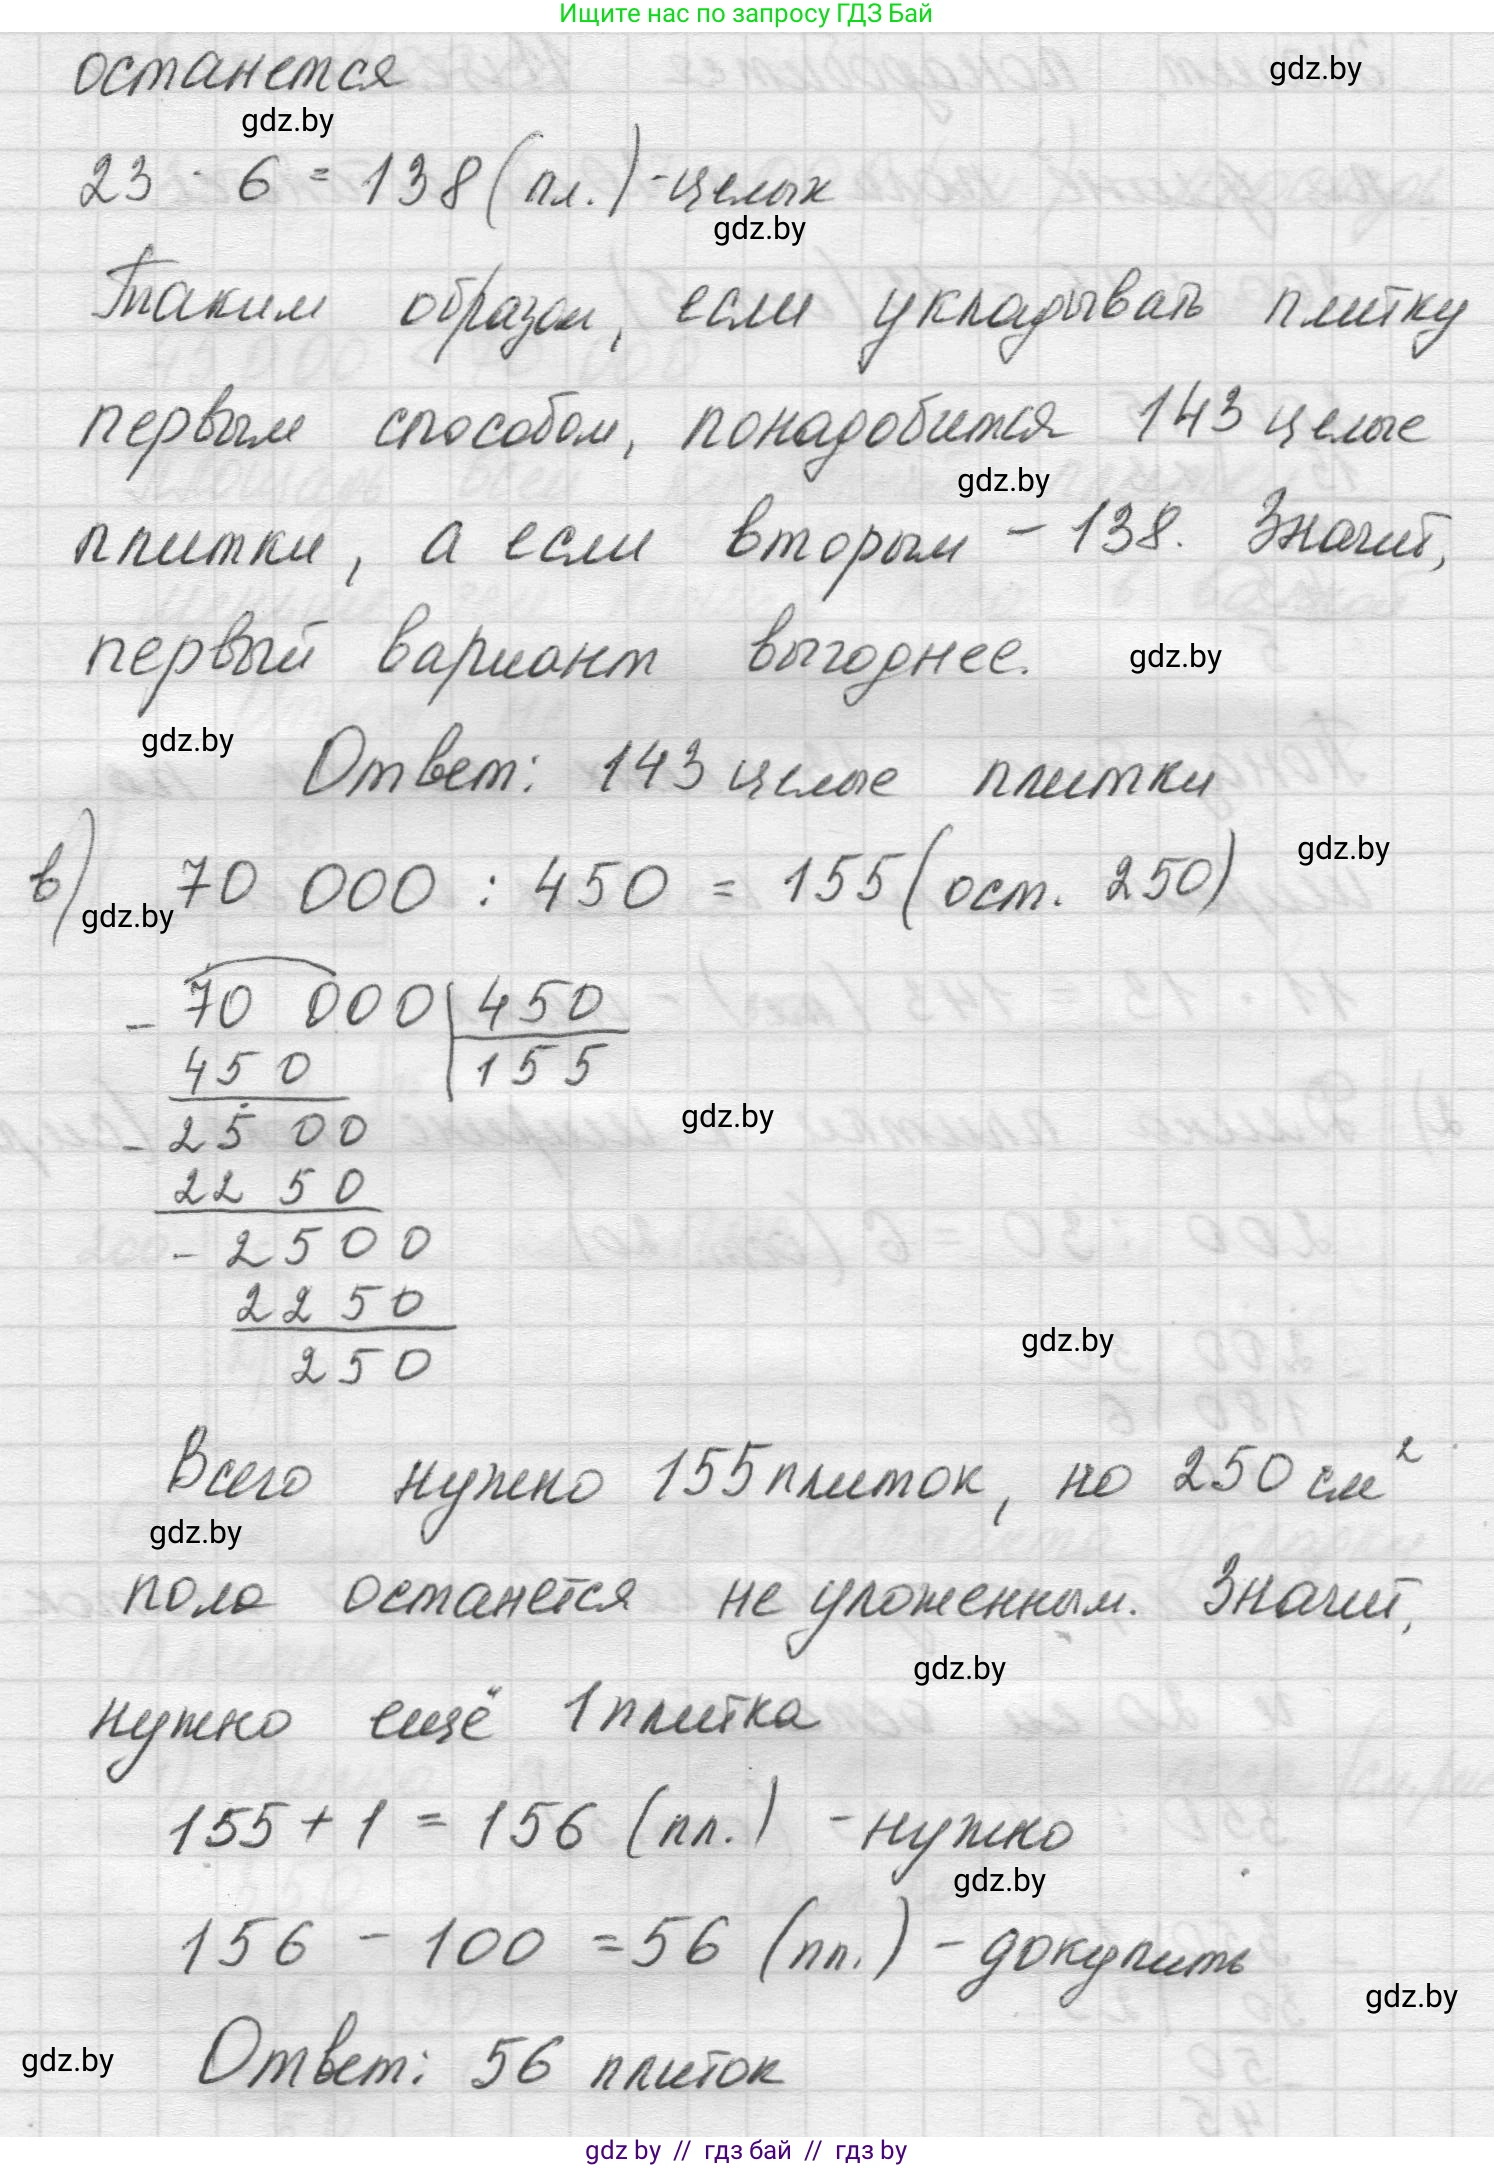 Ищите нас по запросу ГДЗ Бай
останется
gdz.by
gdz.by
23 · 6 = 138 (пл.) - целых
gdz.by
Таким образом, если укладывать плитку
первым способом, понадобится 143 целые
gdz.by
плитки, а если вторым - 138. Значит,
первый вариант выгоднее.
gdz.by
gdz.by
Ответ: 143 целые плитки
gdz.by
в) 70 000 : 450 = 155 (ост. 250)
gdz.by
- 70 000 | 450
450 | 155
- 2500
gdz.by
2250
- 2500
2250
gdz.by
250
Всего нужно 155 плиток, но 250 см²
gdz.by
пола останется не уложенным. Значит,
gdz.by
нужно ещё 1 плитка
155 + 1 = 156 (пл.) - нужно
gdz.by
156 - 100 = 56 (пл.) - докупить
gdz.by
gdz.by
Ответ: 56 плиток
gdz by // гдз бай // гдз by